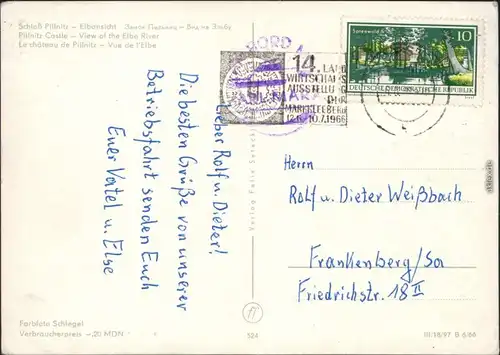 Schloß Pillnitz – Elbansicht
Pillnitz Castle – View of the Elbe River
Le château de Pillnitz – Vue de l'Elbe
Lieber Rolf u. Dieter!
Die besten Grüße von unserer
Betriebsfahrt senden Euch
Euer Vatel u. Else
Farbfoto Schlegel
Verbraucherpreis –.20 MDN
Verlag Felix
524
III/18/97 B 6/66
NORD
14.
WIRTSCHAFTS
AUSSTELLUNG
DER
MARKKLEEBERG
10.7.1966
Spreewald
10
DEUTSCHE DEMOKRATISCHE REPUBLIK
Herrn
Rolf u. Dieter Weißbach
Frankenberg/Sa
Friedrichstr. 18 II